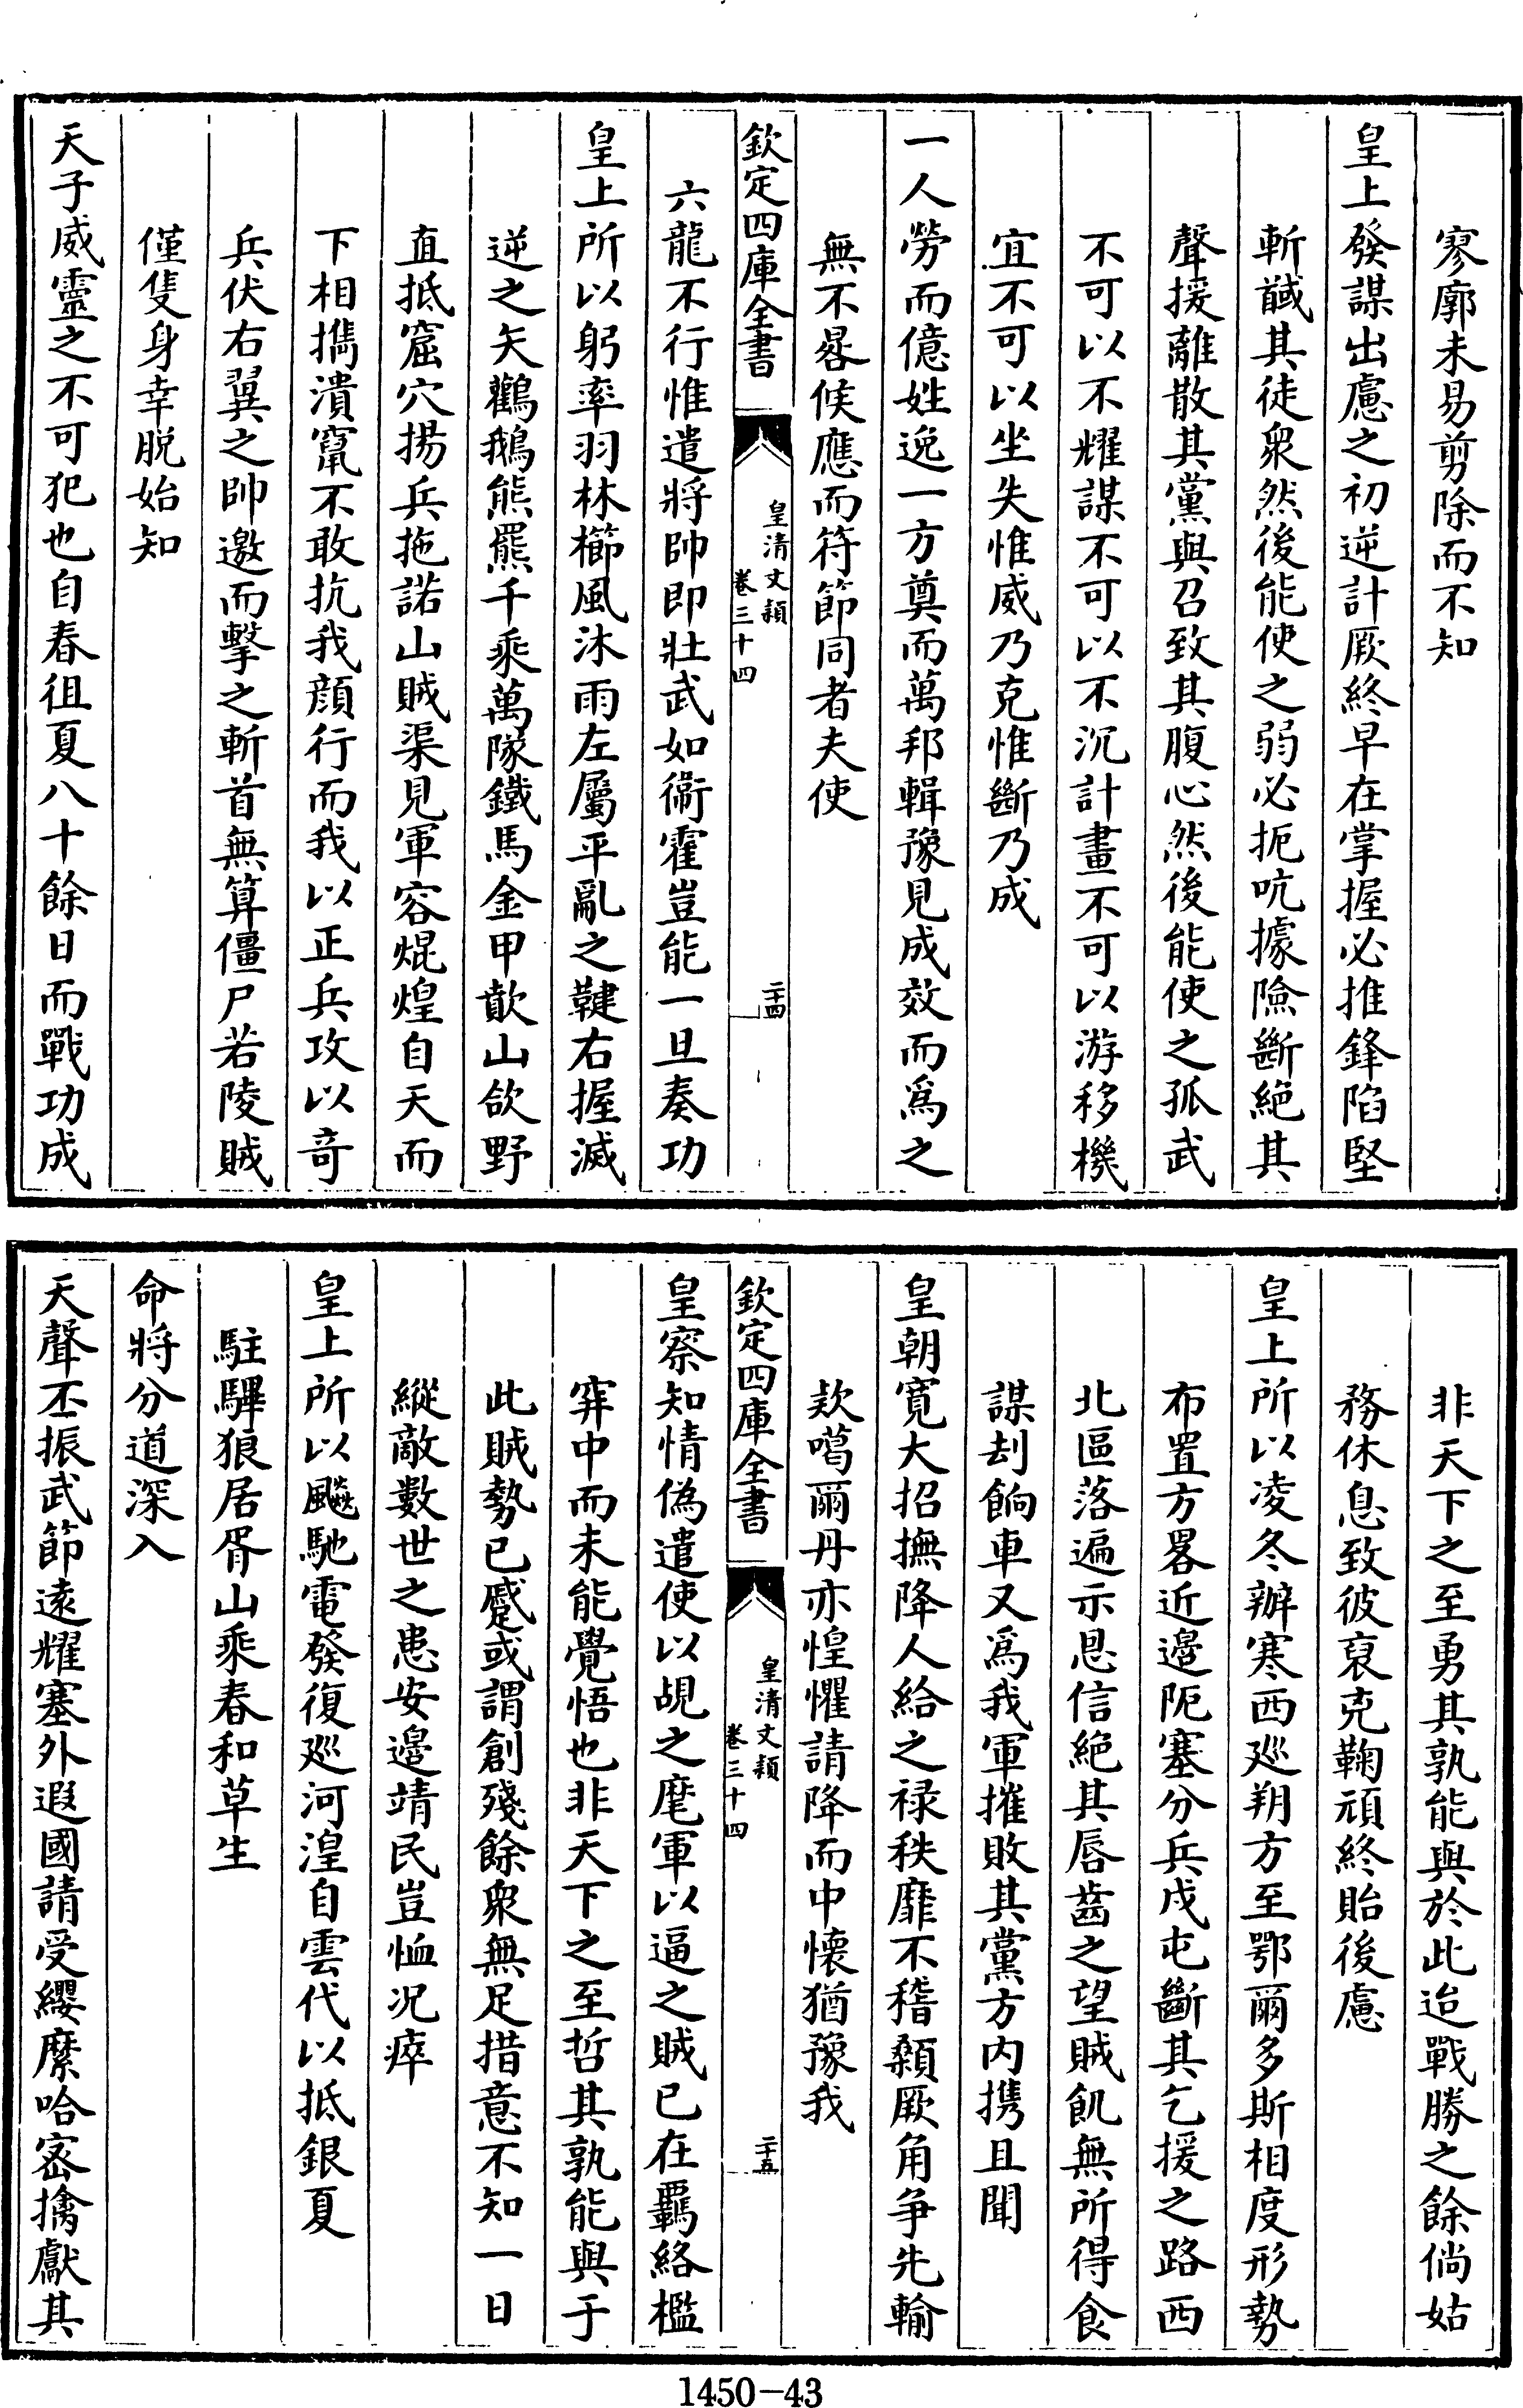 寥廓未易剪除而不知
皇上發謀出慮之初逆計厥終早在掌握必推鋒陷堅
斬馘其徒衆然後能使之弱必扼吭據險斷絶其
聲援離散其黨與召致其腹心然後能使之孤武
不可以不耀謀不可以不沉計畫不可以游移機
宜不可以坐失惟威乃克惟斷乃成
一人勞而億姓逸一方奠而萬邦輯豫見成效而爲之
無不晷候應而符節同者夫使
欽定四庫全書
皇清文穎
卷三十四
二十四
六龍不行惟遣將帥即壯武如衛霍豈能一旦奏功
皇上所以躬率羽林櫛風沐雨左屬平亂之鞬右握滅
逆之矢鸛鵝熊羆千乘萬隊鐵馬金甲歕山欱野
直抵窟穴揚兵拖諾山賊渠見軍容焜煌自天而
下相擕潰竄不敢抗我顔行而我以正兵攻以竒
兵伏右翼之帥邀而擊之斬首無算僵尸若陵賊
僅隻身幸脱始知
天子威靈之不可犯也自春徂夏八十餘日而戰功成
非天下之至勇其孰能與於此迨戰勝之餘倘姑
務休息致彼裒克鞠頑終貽後慮
皇上所以凌冬辦寒西廵朔方至鄂爾多斯相度形勢
布置方畧近邊阨塞分兵戍屯斷其乞援之路西
北區落遍示恩信絶其唇齒之望賊飢無所得食
謀刦餉車又爲我軍摧敗其黨方内携且聞
皇朝寛大招撫降人給之禄秩靡不稽顙厥角争先輸
欵噶爾丹亦惶懼請降而中懐猶豫我
欽定四庫全書
皇清文穎
卷三十四
二十五
皇察知情偽遣使以覘之麾軍以逼之賊已在羈絡檻
穽中而未能覺悟也非天下之至哲其孰能與于
此賊勢已蹙或謂創殘餘衆無足措意不知一日
縱敵數世之患安邊靖民豈恤况瘁
皇上所以飈馳電發復廵河湟自雲代以抵銀夏
駐驆狼居胥山乘春和草生
命將分道深入
天聲丕振武節遠耀塞外遐國請受纓縻哈密擒獻其
1450-43